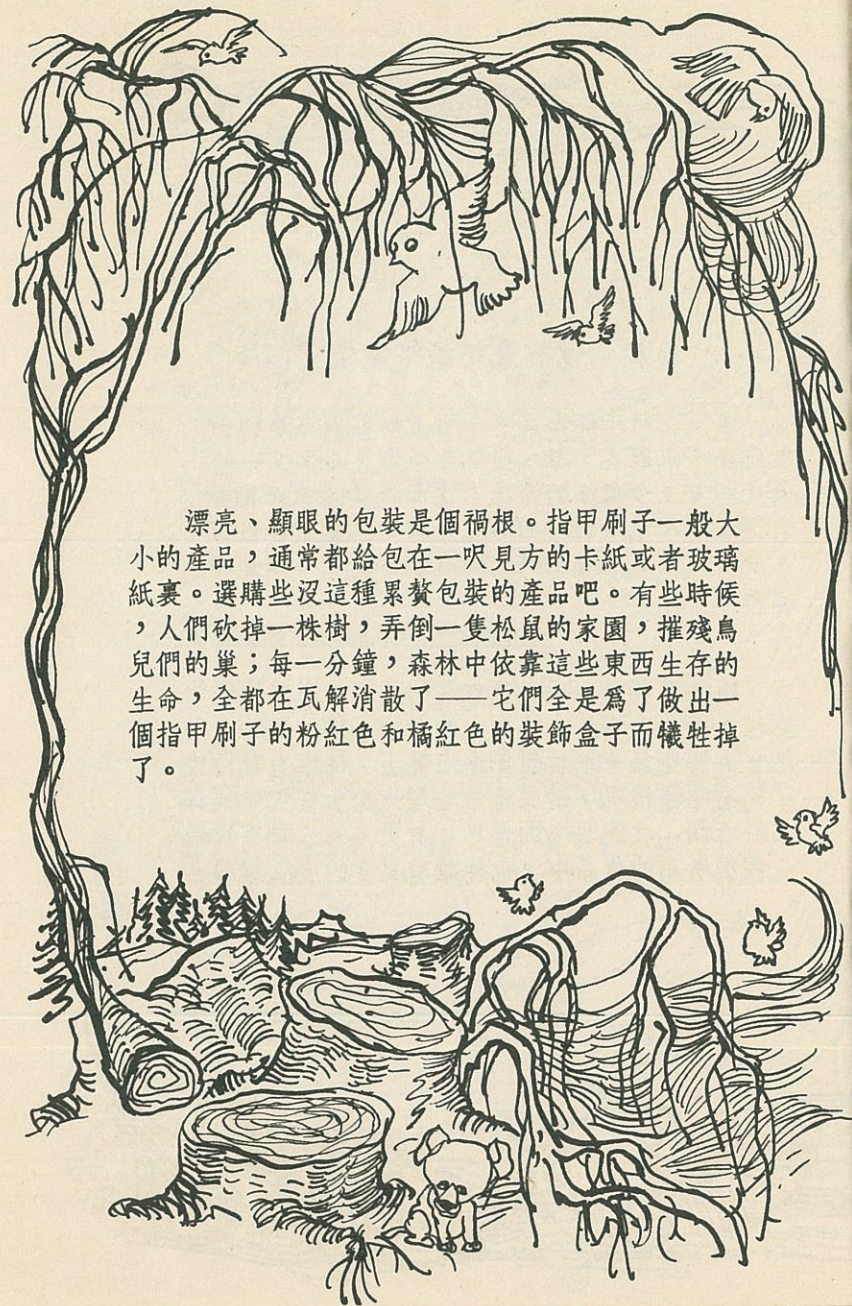 漂亮、顯眼的包裝是個禍根。指甲刷子一般大
小的產品，通常都給包在一呎見方的卡紙或者玻璃
紙裏。選購些沒這種累贅包裝的產品吧。有些時候
，人們砍掉一株樹，弄倒一隻松鼠的家園，摧殘鳥
兒們的巢；每一分鐘，森林中依靠這些東西生存的
生命，全都在瓦解消散了——它們全是爲了做出一
個指甲刷子的粉紅色和橘紅色的裝飾盒子而犧牲掉
了。